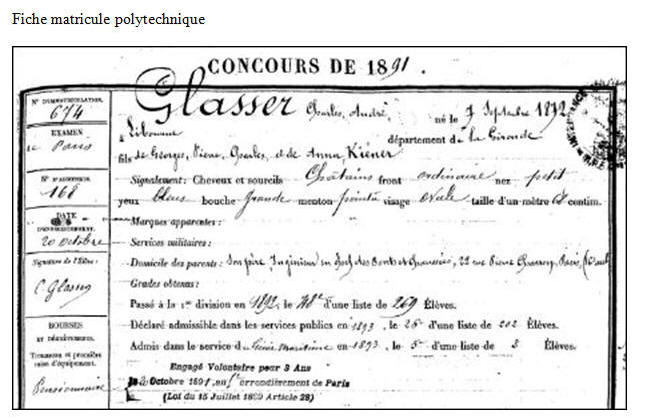 Fiche matricule polytechnique
CONCOURS DE 1891.
N° D'IMMATRICULATION.
674
EXAMEN
de Paris
168
DATE
20 octobre
Signature de l'Élève:
C. Glasser
BOURSES
ET
Trousseau et première mise d'équipement.
Pensionnaire
Glasser Charles, André, né le 7 Septembre 1872
à Libourne département de la Gironde
fils de Georges, Pierre, Charles, et de Anna, Kiéner
Signalement: Cheveux et sourcils Châtains front ordinaire nez petit
yeux bleus bouche grande menton pointu visage ovale taille d'un mètre 68 centim.
Marques apparentes:
Services militaires:
Domicile des parents: Son père, Ingénieur en chef des Ponts et Chaussées, 22 rue Pierre Paris,
Grades obtenus:
Passé à la 1re division en 1892, le d'une liste de 269 Élèves.
Déclaré admissible dans les services publics en 1893, le 26e d'une liste de 202 Élèves.
Admis dans le service du Génie Maritime en 1893, le 5e d'une liste de 8 Élèves.
Engagé Volontaire pour 3 Ans
Octobre 1891, en l'arrondissement de Paris
(Loi du 15 Juillet 1889 Article 28)